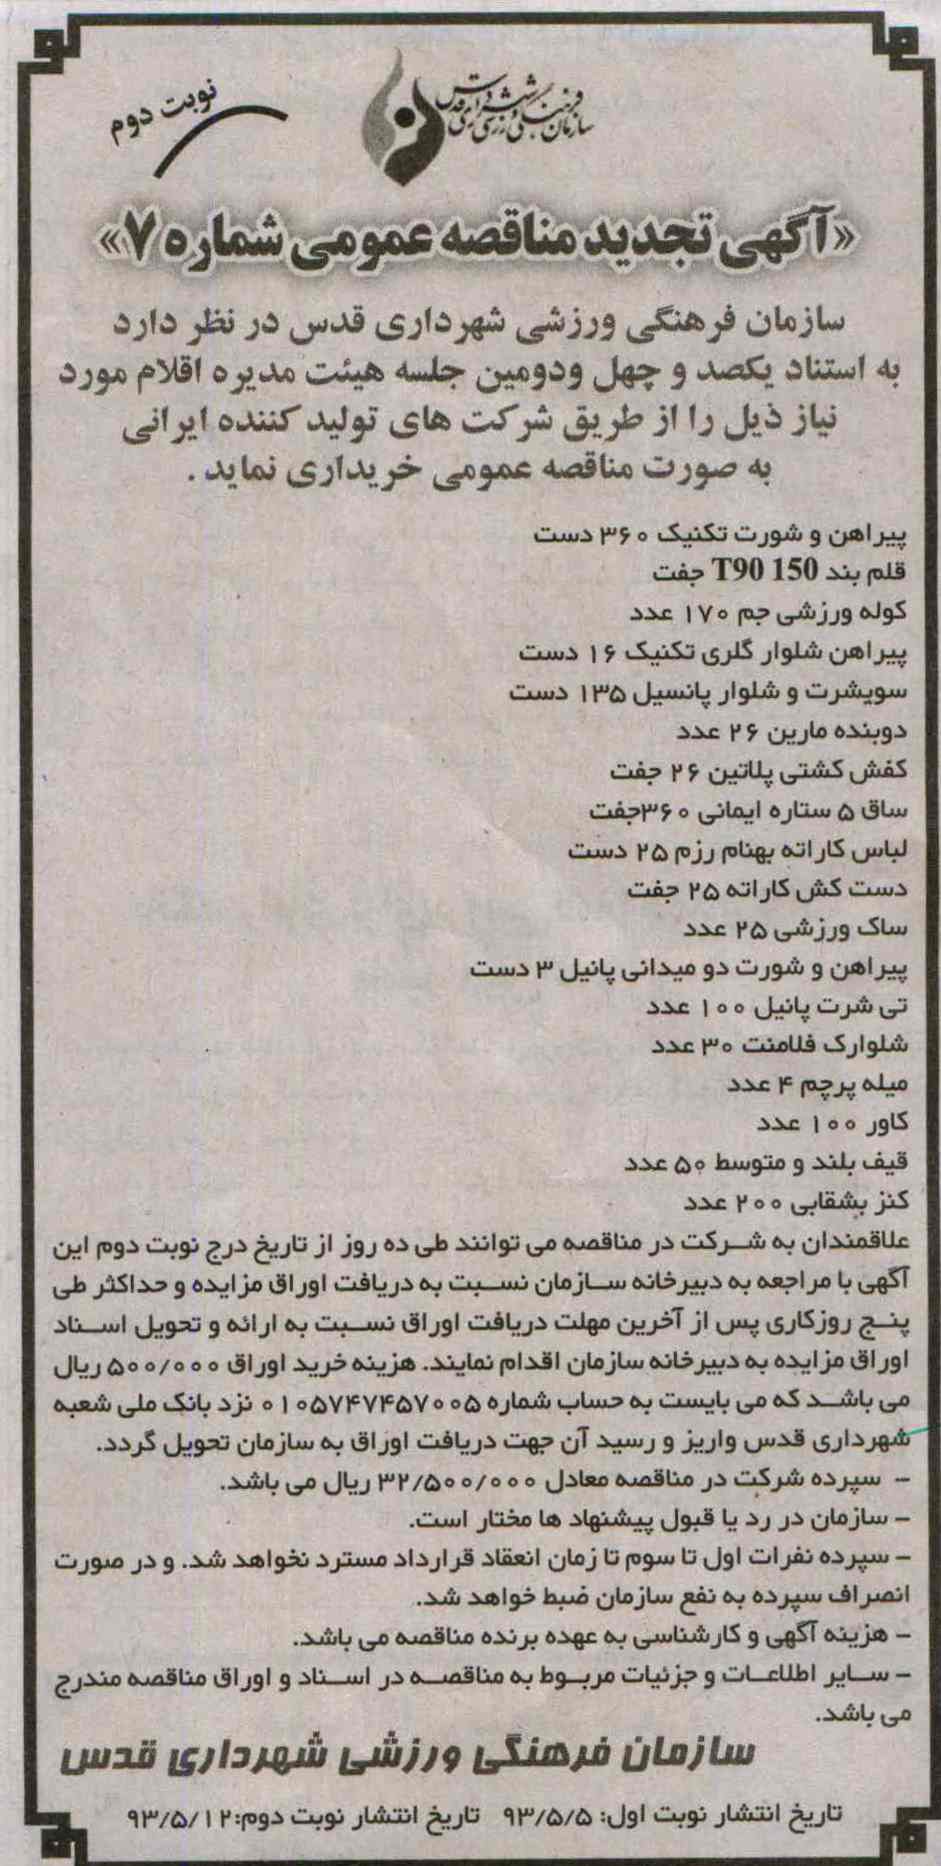 نوبت دوم
سازمان فرهنگی ورزشی شهرداری قدس
«آگهی تجدید مناقصه عمومی شماره ۷»
سازمان فرهنگی ورزشی شهرداری قدس در نظر دارد
به استناد یکصد و چهل ودومین جلسه هیئت مدیره اقلام مورد
نیاز ذیل را از طریق شرکت های تولید کننده ایرانی
به صورت مناقصه عمومی خریداری نماید .
پیراهن و شورت تکنیک ۳۶۰ دست
قلم بند T90 150 جفت
کوله ورزشی جم ۱۷۰ عدد
پیراهن شلوار گلری تکنیک ۱۶ دست
سویشرت و شلوار پانسیل ۱۳۵ دست
دوبنده مارین ۲۶ عدد
کفش کشتی پلاتین ۲۶ جفت
ساق ۵ ستاره ایمانی ۳۶۰جفت
لباس کاراته بهنام رزم ۲۵ دست
دست کش کاراته ۲۵ جفت
ساک ورزشی ۲۵ عدد
پیراهن و شورت دو میدانی پانیل ۳ دست
تی شرت پانیل ۱۰۰ عدد
شلوارک فلامنت ۳۰ عدد
میله پرچم ۴ عدد
کاور ۱۰۰ عدد
قیف بلند و متوسط ۵۰ عدد
کنز بشقابی ۲۰۰ عدد
علاقمندان به شرکت در مناقصه می توانند طی ده روز از تاریخ درج نوبت دوم این
آگهی با مراجعه به دبیرخانه سازمان نسبت به دریافت اوراق مزایده و حداکثر طی
پنج روزکاری پس از آخرین مهلت دریافت اوراق نسبت به ارائه و تحویل اسناد
اوراق مزایده به دبیرخانه سازمان اقدام نمایند. هزینه خرید اوراق ۵۰۰/۰۰۰ ریال
می باشد که می بایست به حساب شماره ۰۱۰۵۷۴۷۴۵۷۰۰۵ نزد بانک ملی شعبه
شهرداری قدس واریز و رسید آن جهت دریافت اوراق به سازمان تحویل گردد.
- سپرده شرکت در مناقصه معادل ۳۲/۵۰۰/۰۰۰ ریال می باشد.
- سازمان در رد یا قبول پیشنهاد ها مختار است.
- سپرده نفرات اول تا سوم تا زمان انعقاد قرارداد مسترد نخواهد شد. و در صورت
انصراف سپرده به نفع سازمان ضبط خواهد شد.
- هزینه آگهی و کارشناسی به عهده برنده مناقصه می باشد.
- سایر اطلاعات و جزئیات مربوط به مناقصه در اسناد و اوراق مناقصه مندرج
می باشد.
سازمان فرهنگی ورزشی شهرداری قدس
تاریخ انتشار نوبت اول: ۹۳/۵/۵ تاریخ انتشار نوبت دوم:۹۳/۵/۱۲